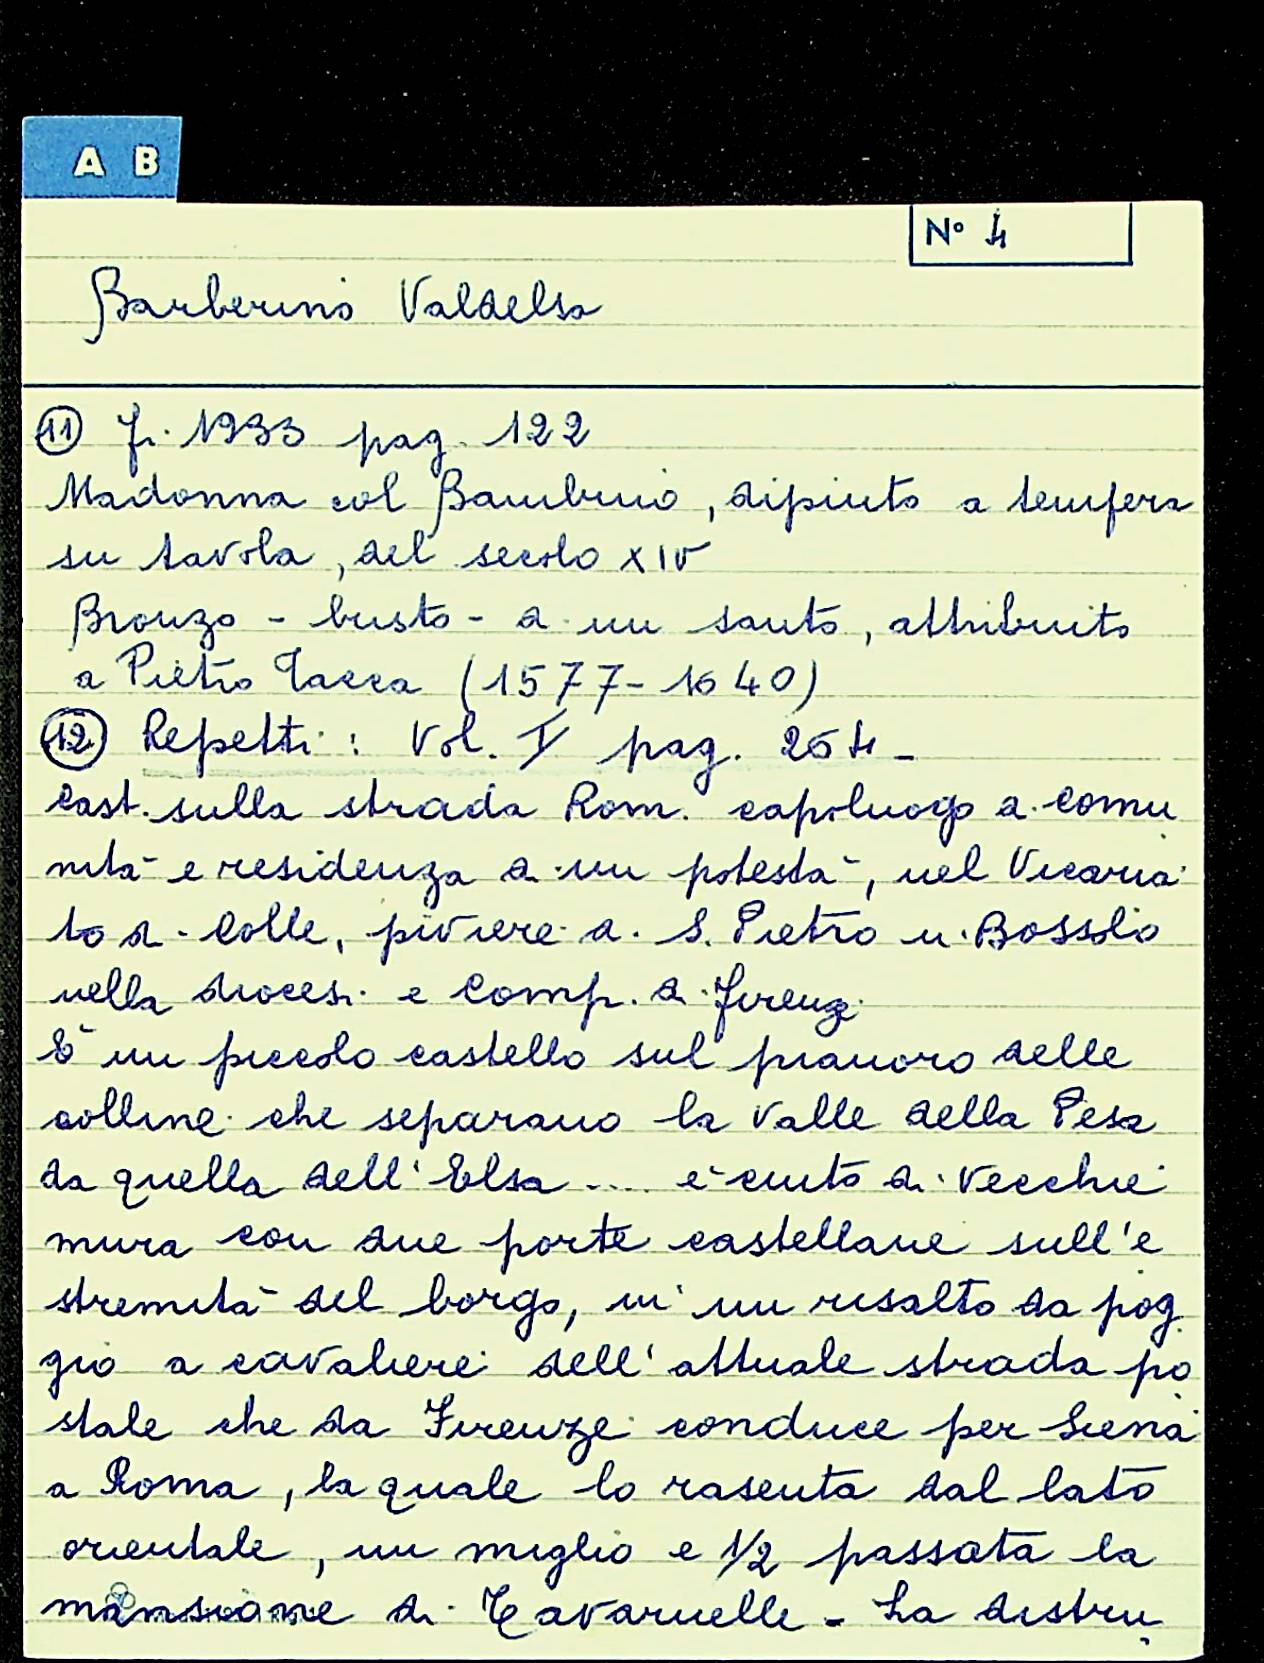 A B
N° 4
Barberino Valdelsa
11 fi. 1933 pag. 122
Madonna col Bambino, dipinto a tempera
su tavola, del secolo XIV
Bronzo - busto - di un santo, attribuito
a Pietro Tacca (1577-1640)
12 Repetti: Vol. I pag. 264 -
Cast. sulla strada Rom. capoluogo di comu
nità e residenza di un potestà, nel Vicaria
to di Colle, piviere di S. Pietro in Bossolo
nella diocesi e Comp. di Firenz.
È un piccolo castello sul pianoro delle
colline che separano la valle della Pesa
da quella dell'Elsa .... è cinto di vecchie
mura con due porte castellane sull'e
stremità del borgo, in un risalto da pog
gio a cavaliere dell'attuale strada po
stale che da Firenze conduce per Siena
a Roma, la quale lo rasenta dal lato
orientale, un miglio e 1/2 passata la
mansione di Tavarnelle - La distru